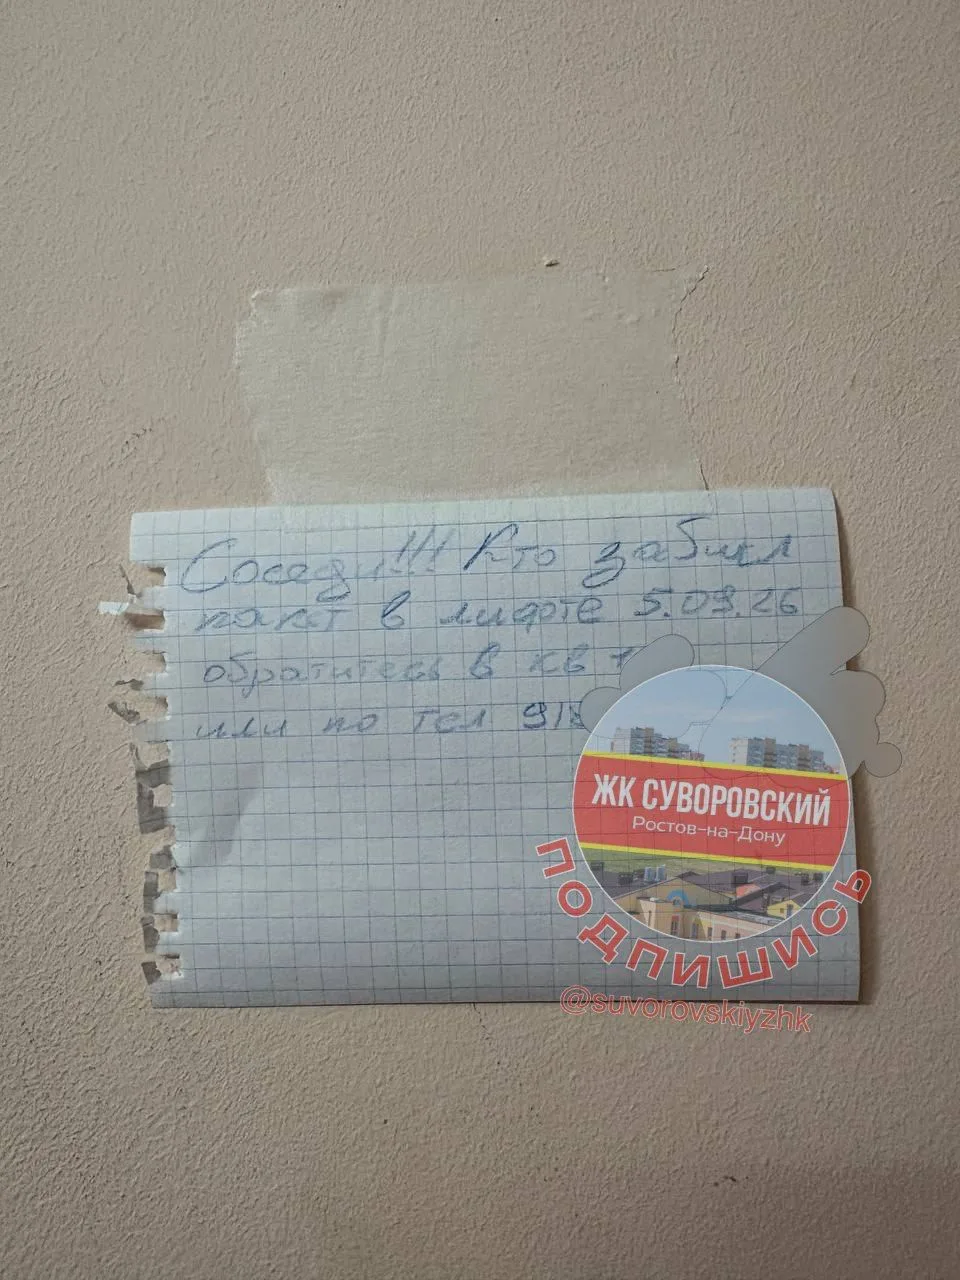 Соседи!!! Кто забыл
пакет в лифте 5.03.26
обратитесь в кв 1
или по тел 918
ЖК СУВОРОВСКИЙ
Ростов-на-Дону
ПОДПИШИСЬ
@suvorovskiyzhk